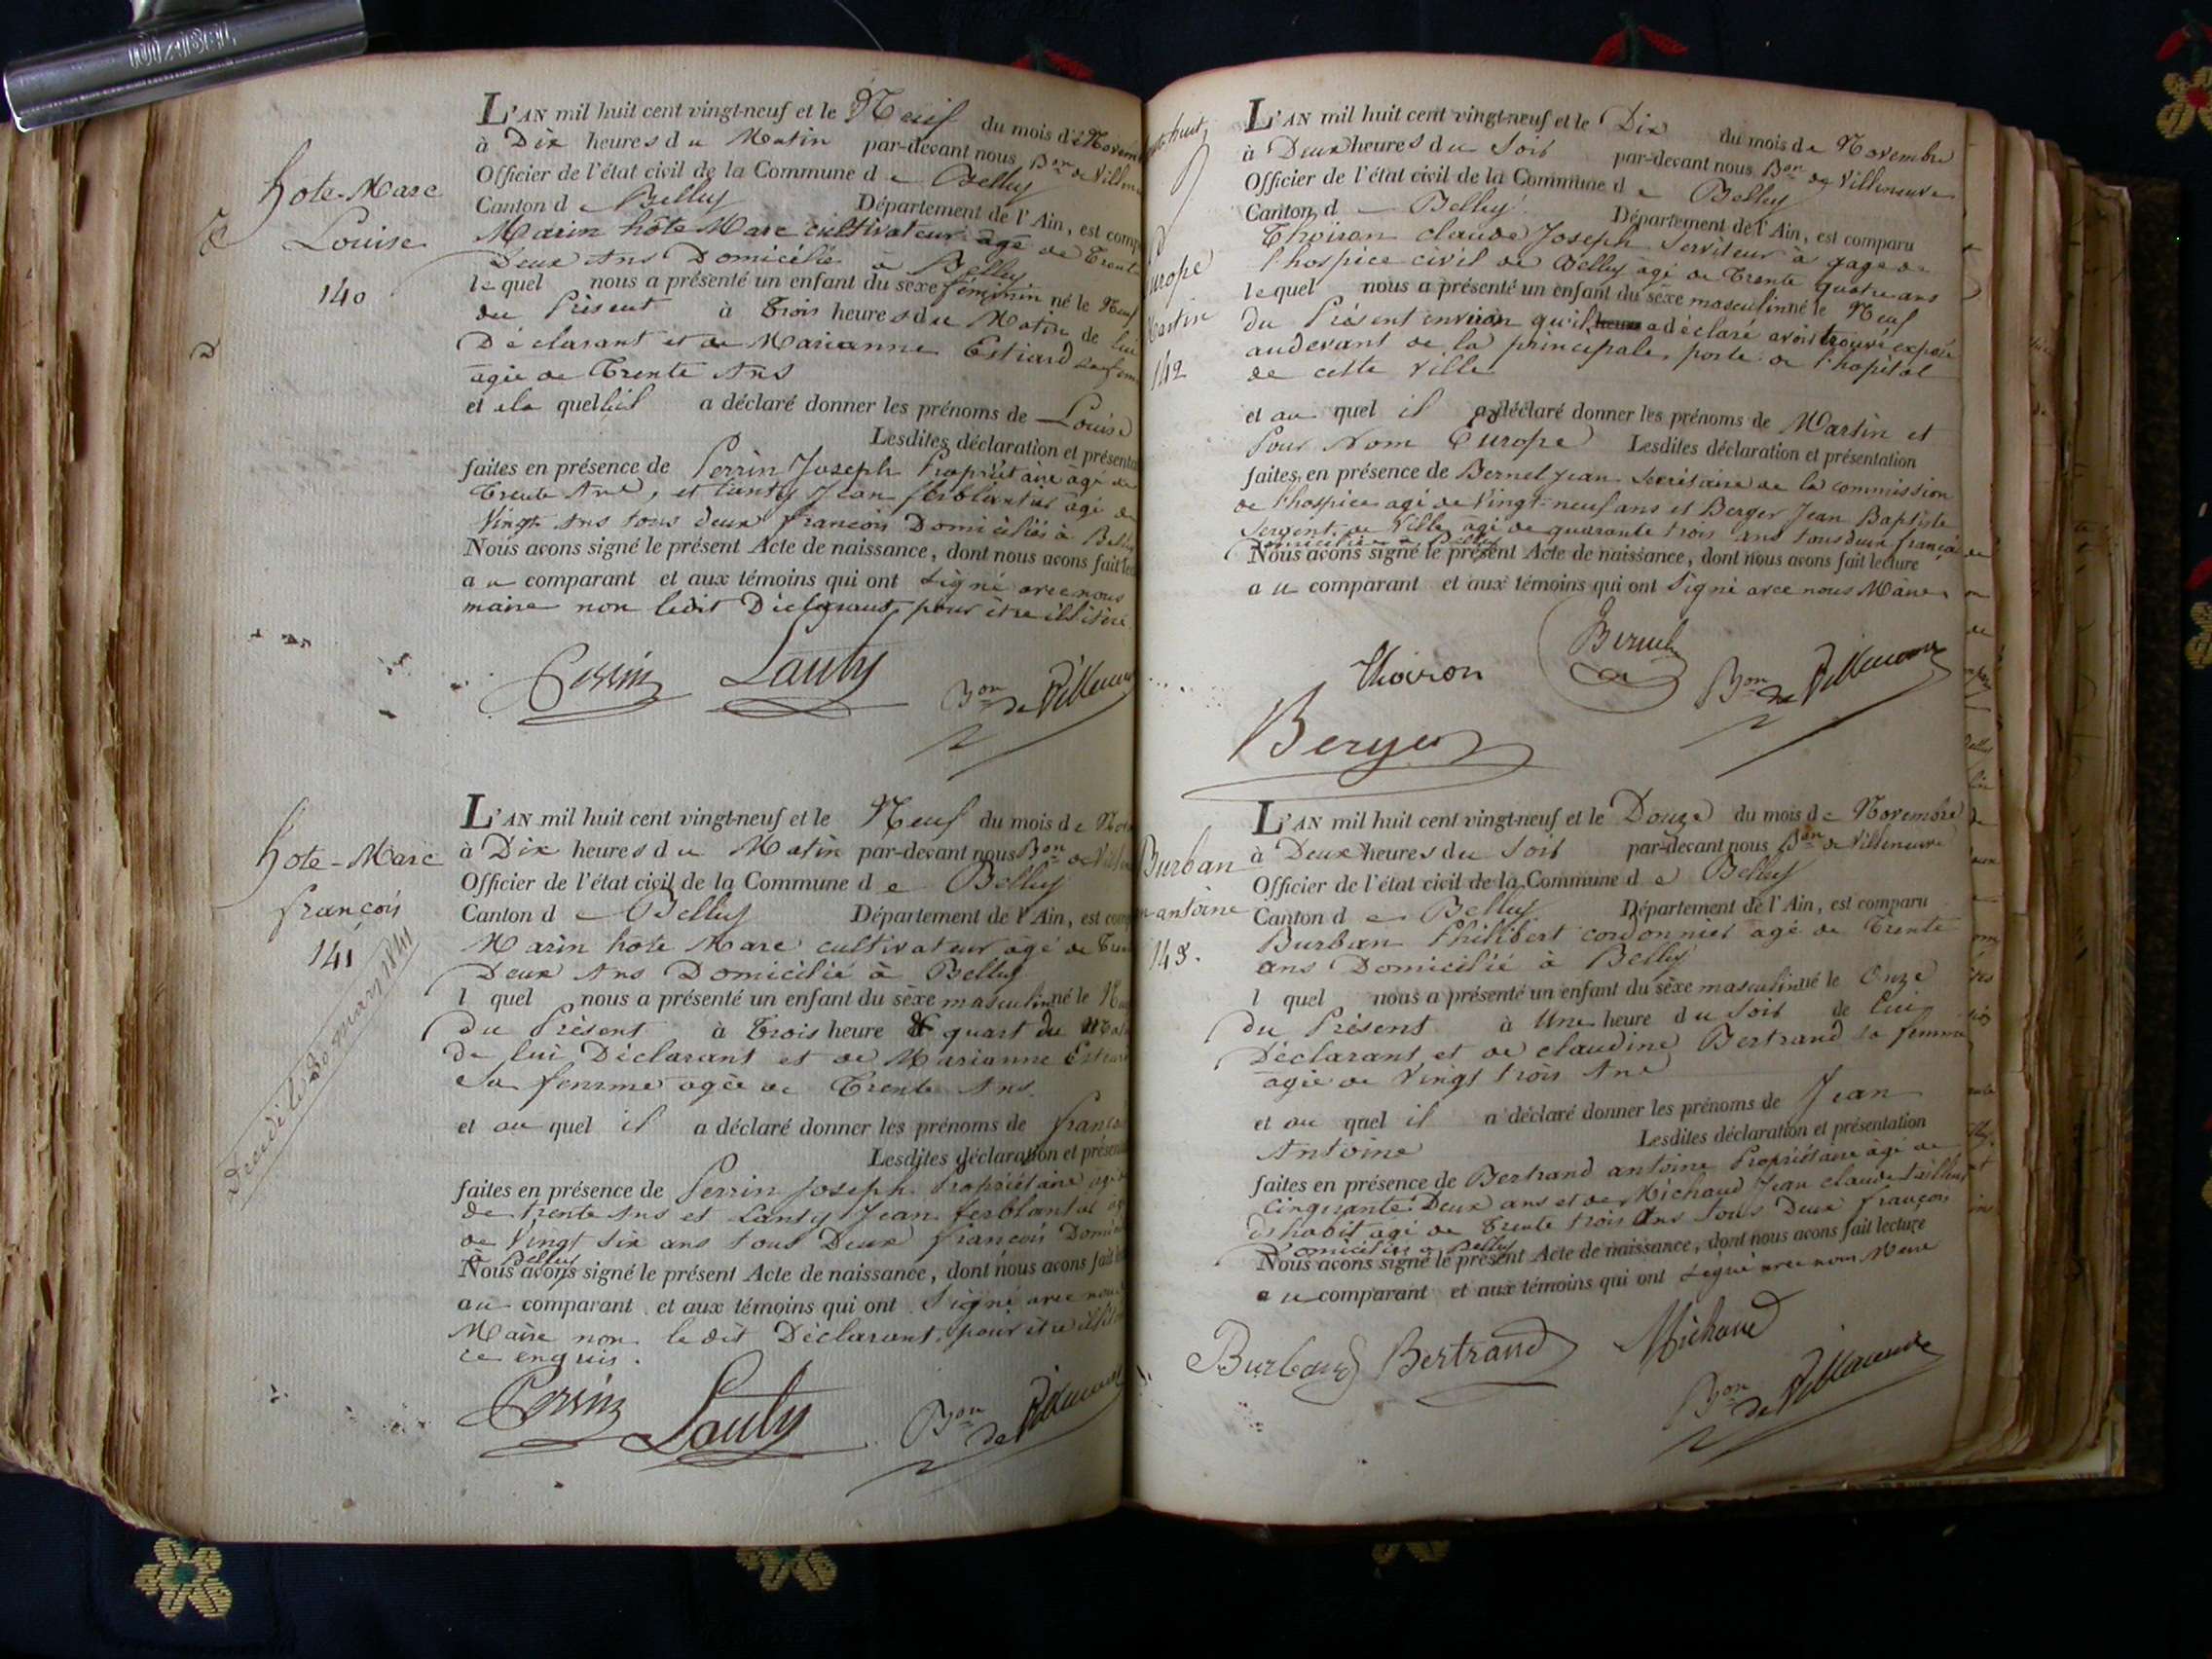 hote-Marc
Louise
140
L'AN mil huit cent vingt-neuf et le Neuf du mois de Novem
à Dix heures du Matin par-devant nous Bon de Villen
Officier de l'état civil de la Commune de Belley
Canton de Belley Département de l'Ain, est comp
Marin hôte Marc cultivateur âgé de Trente
Deux Ans Domicilié à Belley
lequel nous a présenté un enfant du sèxe féminin né le Neuf
du Présent à Trois heures du Matin de lui
Déclarant et de Marianne Estiard sa fem
agée de Trente Ans
et a la quelle il a déclaré donner les prénoms de Louise
Lesdites déclaration et présenta
faites en présence de Perrin Joseph Propriétaire âgé de
Trente Ans, et Lanty Jean ferblantier âgé de
Vingt Ans tous deux françois Domiciliés à Belley
Nous avons signé le présent Acte de naissance, dont nous avons fait lec
au comparant et aux témoins qui ont signé avec nous
maire non ledit Déclarant, pour être illitéré
Perrin Lanty Bon de Villeneuve
hote-Marc
françois
141
L'AN mil huit cent vingt-neuf et le Neuf du mois de Nov
à Dix heures du Matin par-devant nous Bon de Vill
Officier de l'état civil de la Commune de Belley
Canton de Belley Département de l'Ain, est comp
Marin hôte Marc cultivateur âgé de Tren
Deux Ans Domicilié à Belley
l quel nous a présenté un enfant du sèxe masculin né le Neu
du Présent à Trois heure & quart du Mat
de lui Déclarant et de Marianne Estiard
sa femme agée de Trente Ans.
et au quel il a déclaré donner les prénoms de françois
Lesdites déclaration et présen
faites en présence de Perrin Joseph Propriétaire âgé
de trente Ans et Lanty Jean ferblantier âgé
de Vingt Six ans tous Deux françois Domici
à Belley
Nous avons signé le présent Acte de naissance, dont nous avons fait
au comparant et aux témoins qui ont signé avec nous
Maire non le dit Déclarant, pour être illitéré
ce enquis.
Perrin Lanty Bon de Villeneuve
Europe
Martin
142
L'AN mil huit cent vingt-neuf et le Dix du mois de Novembre
à Deux heures du Soir par-devant nous Bon de Villeneuve
Officier de l'état civil de la Commune de Belley
Canton de Belley Département de l'Ain, est comparu
Thoiron claude Joseph Serviteur à gage de
l'hospice civil de Belley agé de Trente quatre ans
lequel nous a présenté un enfant du sèxe masculin né le Neuf
du Présent environ qu'il a déclaré avoir trouvé exposé
audevant de la principale porte de l'hopital
de cette Ville
et au quel il a déclaré donner les prénoms de Martin et
Pour Nom Europe Lesdites déclaration et présentation
faites en présence de Bernel Jean Secrétaire de la commission
de l'hospice agé de Vingt-neuf ans et Berger Jean Baptiste
Sergent de Ville agé de quarante trois ans tous deux françois
Domiciliés à Belley
Nous avons signé le présent Acte de naissance, dont nous avons fait lecture
au comparant et aux témoins qui ont signé avec nous Maire
Thoiron Bernel Bon de Villeneuve
Berger
Burban
antoine
143.
L'AN mil huit cent vingt-neuf et le Douze du mois de Novembre
à Deux heures du Soir par-devant nous Bon de Villeneuve
Officier de l'état civil de la Commune de Belley
Canton de Belley Département de l'Ain, est comparu
Burban Philibert cordonnier agé de Trente
ans Domicilié à Belley
l quel nous a présenté un enfant du sèxe masculin né le Onze
du Présent à Une heure du Soir de Lui
Déclarant et de claudine Bertrand sa femme
agée de Vingt trois Ans
et au quel il a déclaré donner les prénoms de Jean
Antoine Lesdites déclaration et présentation
faites en présence de Bertrand antoine Propriétaire âgé de
Cinquante Deux ans et de Michaud Jean claude tailleur
d'habit agé de Trente trois Ans tous Deux françois
Domiciliés à Belley
Nous avons signé le présent Acte de naissance, dont nous avons fait lecture
au comparant et aux témoins qui ont signé avec nous Maire
Burban Bertrand Michaud
Bon de Villeneuve